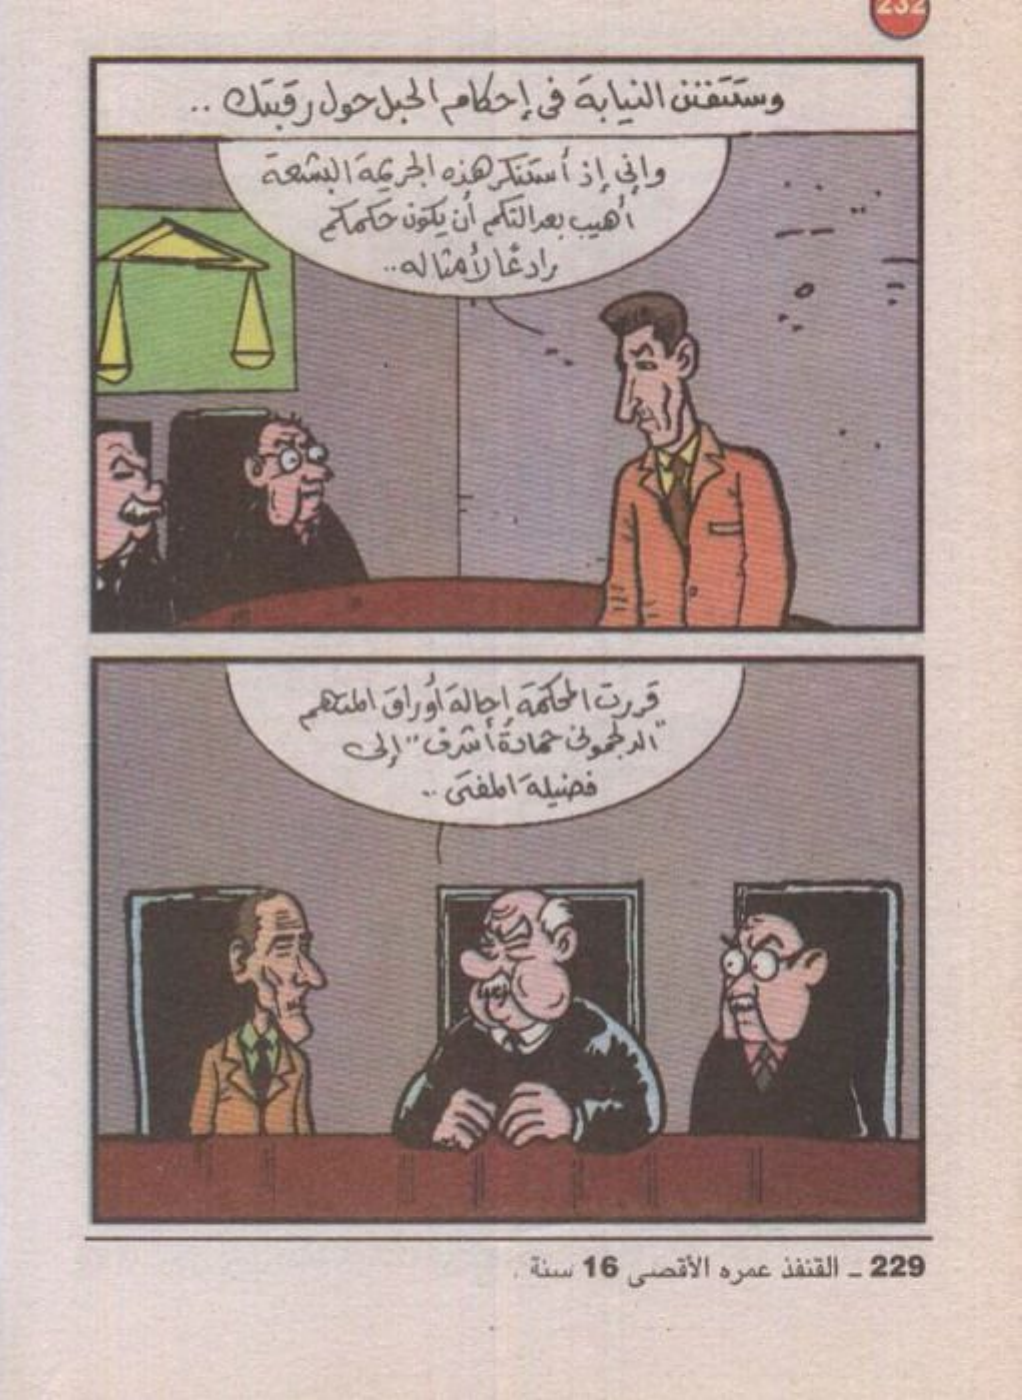 232
وستتفنن النيابة فى إحكام الحبل حول رقبتك ..
وإنى إذ أستنكر هذه الجريمة البشعة
أهيب بعدالتكم أن يكون حكمكم
رادعًا لأمثاله..
قررت المحكمة إحالة أوراق المتهم
"الدلجمونى حمادة أشرف" إلى
فضيلة المفتى ..
229 ـ القنفذ عمره الأقصى 16 سنة .